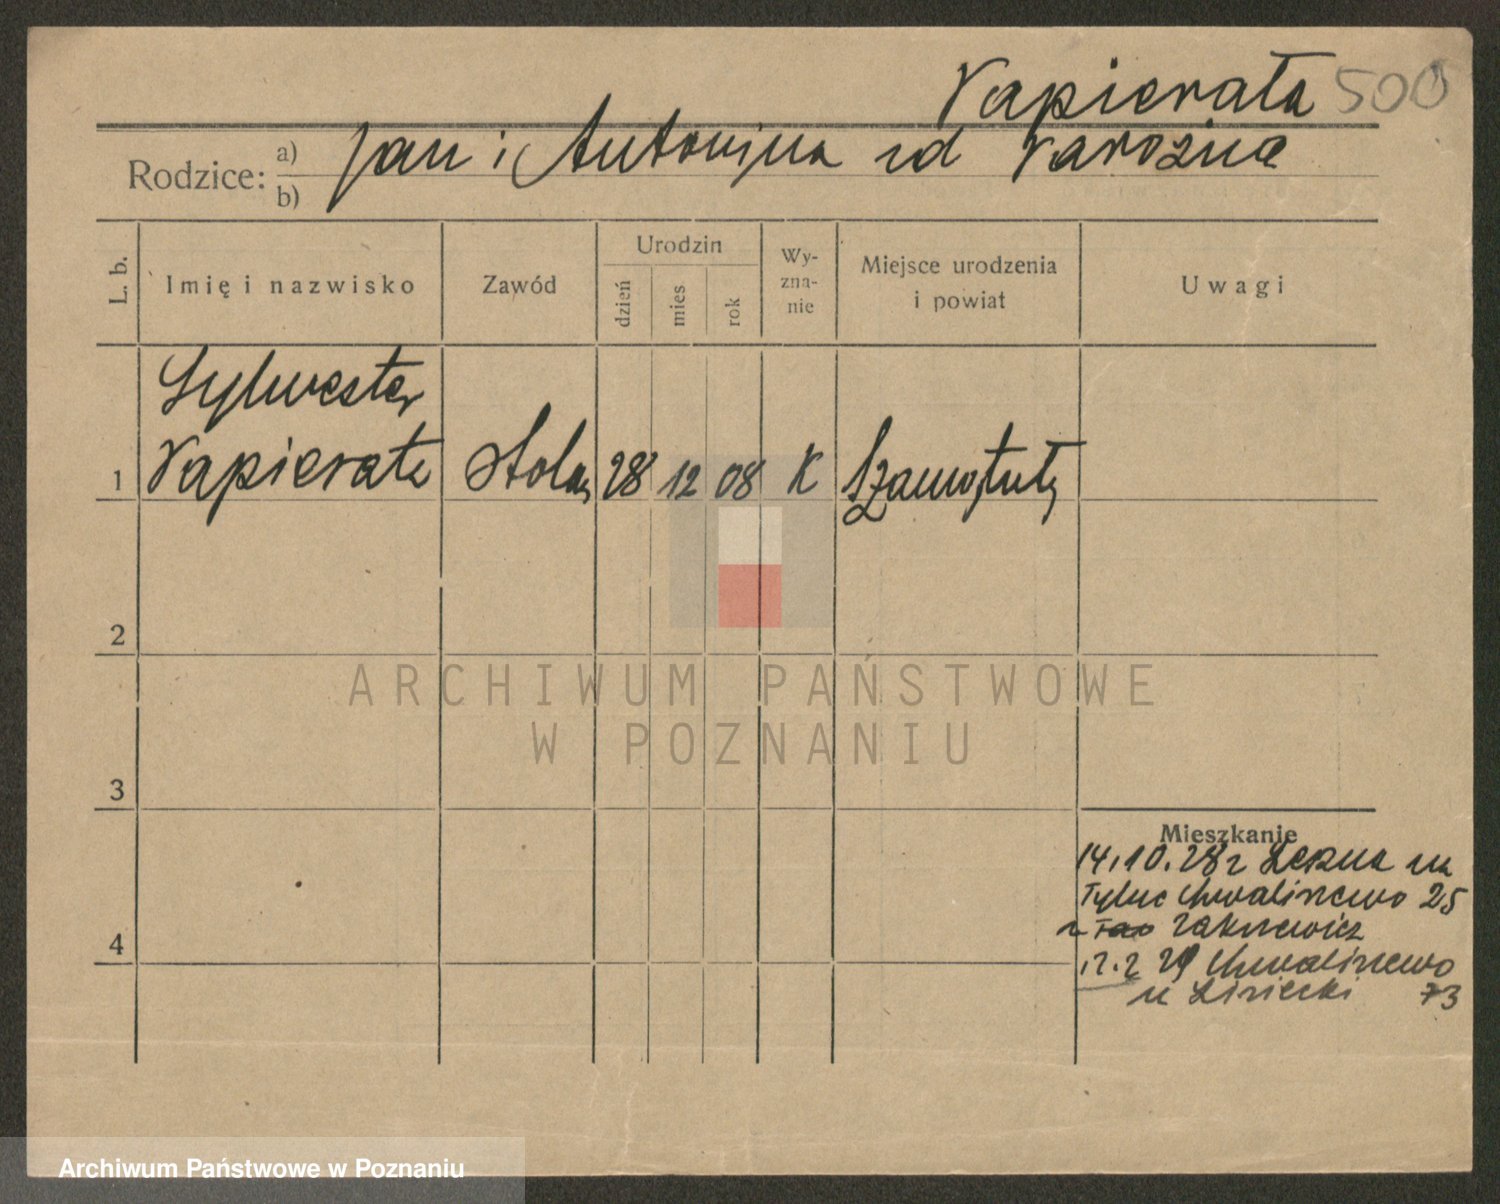 Napierała 500
Rodzice: a) Jan i Antonina
b)
L. b.
Imię i nazwisko
Zawód
Urodzin
dzień
mies
rok
Wy-
zna-
nie
Miejsce urodzenia
i powiat
Uwagi
Sylwester
1 Napierała stolarz 28 12 08 K Szamotuły
2
3
4
ARCHIWUM PAŃSTWOWE
W POZNANIU
Mieszkanie
14.10.28 r na
Chwaliszewo 25
29 Chwaliszewo
73
Archiwum Państwowe w Poznaniu